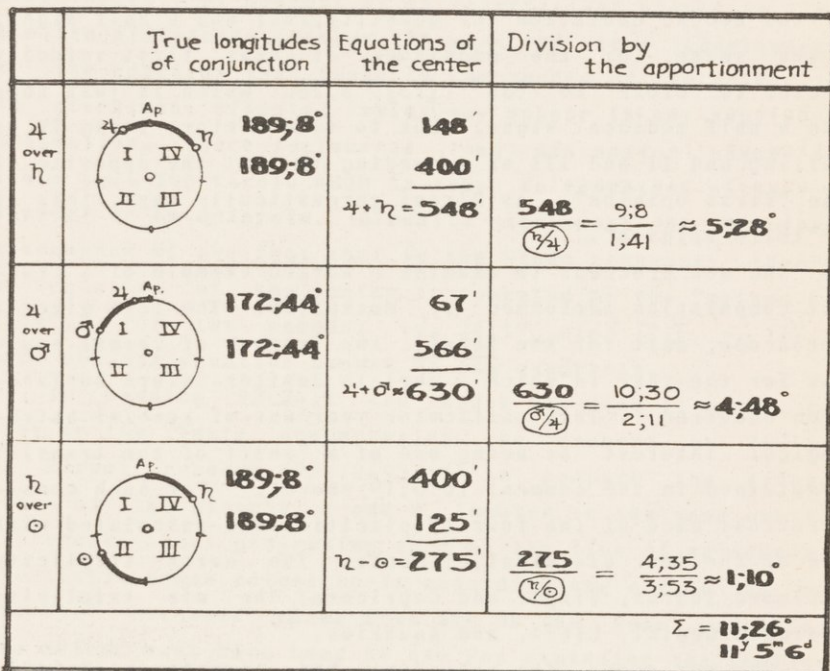 True longitudes of conjunction
Equations of the center
Division by the apportionment
♃ over ♄
Ap.
♃
♄
I IV
II III
189;8°
189;8°
148'
400'
♃+♄=548'
548/(♄/♃) = 9;8/1;41 ≈ 5;28°
♃ over ♂
Ap.
♃
♂
I IV
II III
172;44°
172;44°
67'
566'
♃+♂≈630'
630/(♂/♃) = 10;30/2;11 ≈ 4;48°
♄ over ⊙
Ap.
♄
⊙
I IV
II III
189;8°
189;8°
400'
125
♄-⊙=275'
275/(♄/⊙) = 4;35/3;53 ≈ 1;10°
Σ = 11;26°
11ʸ 5ᵐ 6ᵈ